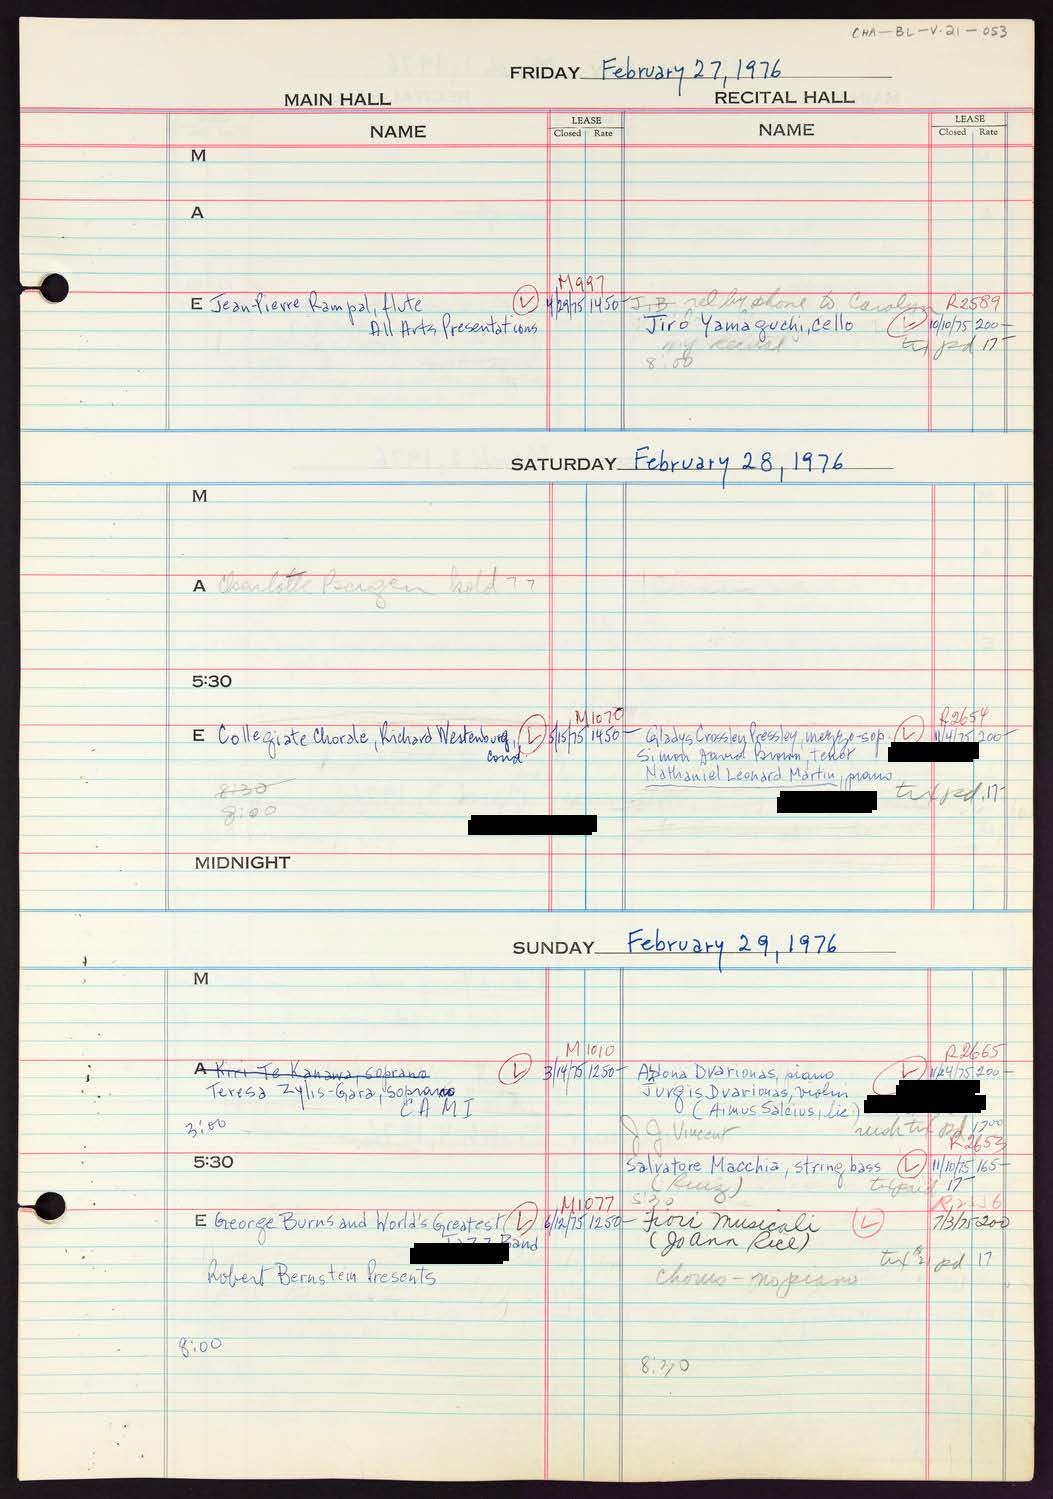 CHA-BL-V.21-053
FRIDAY February 27, 1976
MAIN HALL
RECITAL HALL
NAME
LEASE
Closed Rate
NAME
LEASE
Closed Rate
M
A
M997
E Jean-Pierre Rampal, flute 4/29/75 1450-
All Arts Presentations
J.B. rel by phone to Carolyn R2589
Jiro Yamaguchi, cello 10/10/75 200-
ny recital txt pd 17-
8:00
SATURDAY February 28, 1976
M
A Charlotte Bergen hold ??
5:30
M1070
E Collegiate Chorale, Richard Westenburg, 5/15/75 1450-
cond
8:30
8:00
R2654
Gladys Crossley Pressley, mezzo-sop. 11/4/75 200-
Simon David Brown, tenor
Nathaniel Leonard Martin, piano
txt pd. 17-
MIDNIGHT
SUNDAY February 29, 1976
M
M1010
A Kiri Te Kanawa, soprano 3/14/75 1250-
Teresa Zylis-Gara, soprano
CAMI
3:00
R2665
Aldona Dvarionas, piano 11/24/75 200-
Jurgis Dvarionas, violin
(Aimus Salcius, lic)
J. Vincent rush txt pd 17.00
5:30
R2653
Salvatore Macchia, string bass 11/10/75 165-
txt paid 17-
5:30
M1077
E George Burns and World's Greatest 6/12/75 1250-
Jazz Band
Robert Bernstein Presents
8:00
Fiori Musicali 7/3/75 200
(JoAnn Rice)
txt pd 17
Chorus - no piano
8:30